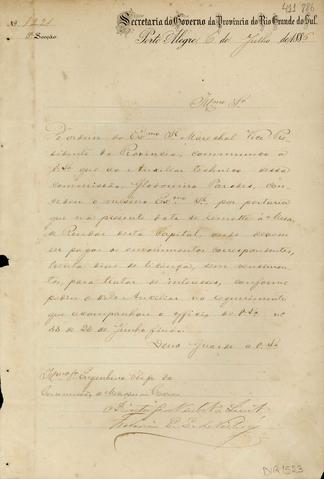 411 786
Secretaria do Governo da Provincia do Rio Grande do Sul.
Nº 1221
Secção
Porto Alegre, 6 de Julho de 1885
Illmo Sr
De ordem do Exmo Sr Marechal Vice Pre-
sidente da Provincia, communico á
V. Sª que ao Auxiliar technico dessa
Commissão,
o mesmo Exmo Sr por portaria
que na presente data se remette á Mesa
de Rendas desta Capital, onde devem
ser pagos os emolumentos correspondentes,
trinta dias de licença, sem vencimen-
tos, para tratar de interesses, conforme
pedio o dito Auxiliar no requerimento
que acompanhou o officio de V. Sª nº
33 de 26 de Junho findo.
Deus Guarde a V. Sª
Illmo Sr Engenheiro Chefe da
Commissão